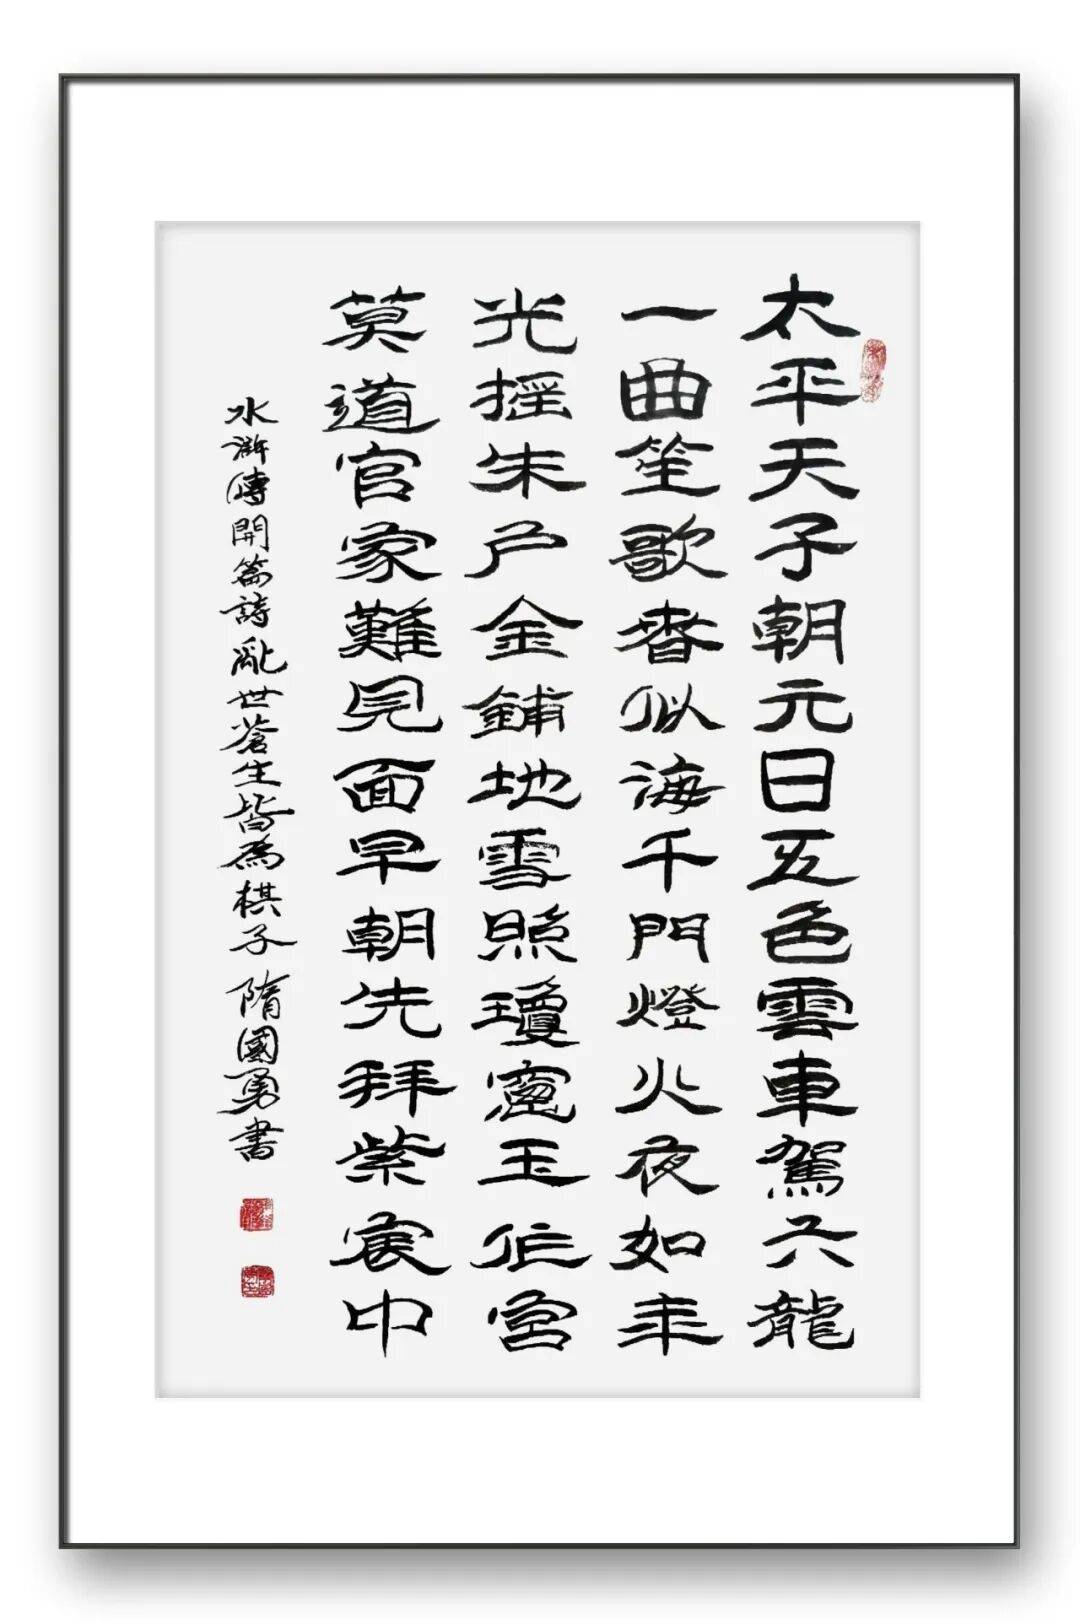 太平天子朝元日五色雲車駕六龍
一曲笙歌春似海千門燈火夜如年
光搖朱戶金鋪地雪照瓊窗玉作宮
莫道官家難見面早朝先拜紫宸中
水滸傳開篇詩亂世蒼生皆為棋子隋國勇書